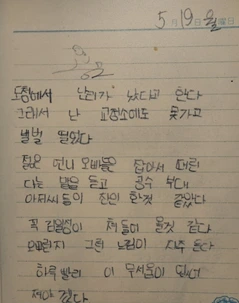 5월 19일 월요일
공포
도청에서 난리가 났다고 한다
그래서 난 교정소에도 못가고
벌벌 떨었다
젊은 언니 오빠들을 잡아서 때린
다는 말을 듣고 공수 부대
아저씨들이 잔인 한것 같았다
꼭 김일성이 쳐 들어 올것 같다
그런 느낌이 자주 든다
하루 빨리 이 무서움이 없어
져야 겠다